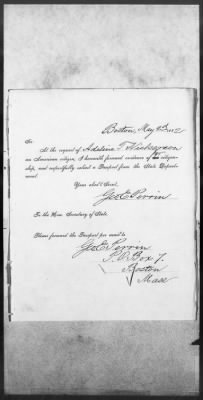 Boston, May
Sir
At the request of Adeline F.
an American citizen, I herewith forward evidence of citizen-
ship, and respectfully solicit a Passport from the State Depart-
ment.
Your obd't Servt,
Geo E Perrin
To the Hon. Secretary of State.
Please forward the Passport per mail to
Geo E Perrin
P.O. Box 7.
Boston
Mass